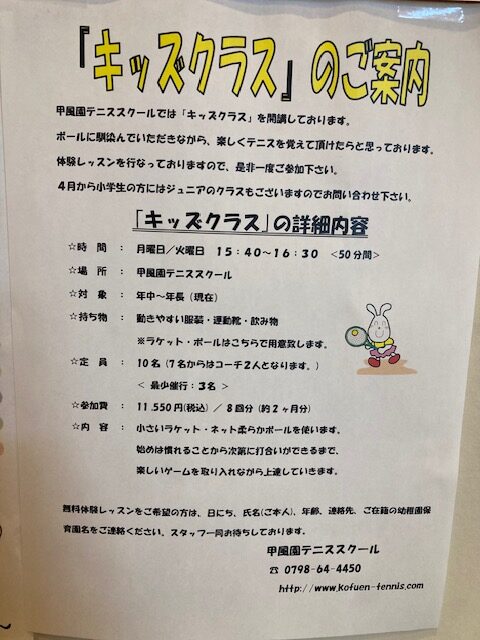 『キッズクラス』のご案内
甲風園テニススクールでは「キッズクラス」を開講しております。
ボールに馴染んでいただきながら、楽しくテニスを覚えて頂けたらと思っております。
体験レッスンを行なっておりますので、是非一度ご参加下さい。
4月から小学生の方にはジュニアのクラスもございますのでお問い合わせ下さい。
「キッズクラス」の詳細内容
☆時　間　：　月曜日／火曜日　15：40～16：30　<50分間>
☆場　所　：　甲風園テニススクール
☆対　象　：　年中～年長（現在）
☆持ち物　：　動きやすい服装・運動靴・飲み物
※ラケット・ボールはこちらで用意致します。
☆定　員　：　10名（7名からはコーチ2人となります。）
＜ 最少催行：3名 ＞
☆参加費　：　11.550円(税込) ／ 8回分（約2ヶ月分）
☆内　容　：　小さいラケット・ネット柔らかボールを使います。
始めは慣れることから次第に打合いができるまで、
楽しいゲームを取り入れながら上達していきます。
無料体験レッスンをご希望の方は、日にち、氏名(ご本人)、年齢、連絡先、ご在籍の幼稚園保
育園名をご連絡ください。スタッフ一同お待ちしております。
甲風園テニススクール
☎ 0798-64-4450
http://www.kofuen-tennis.com